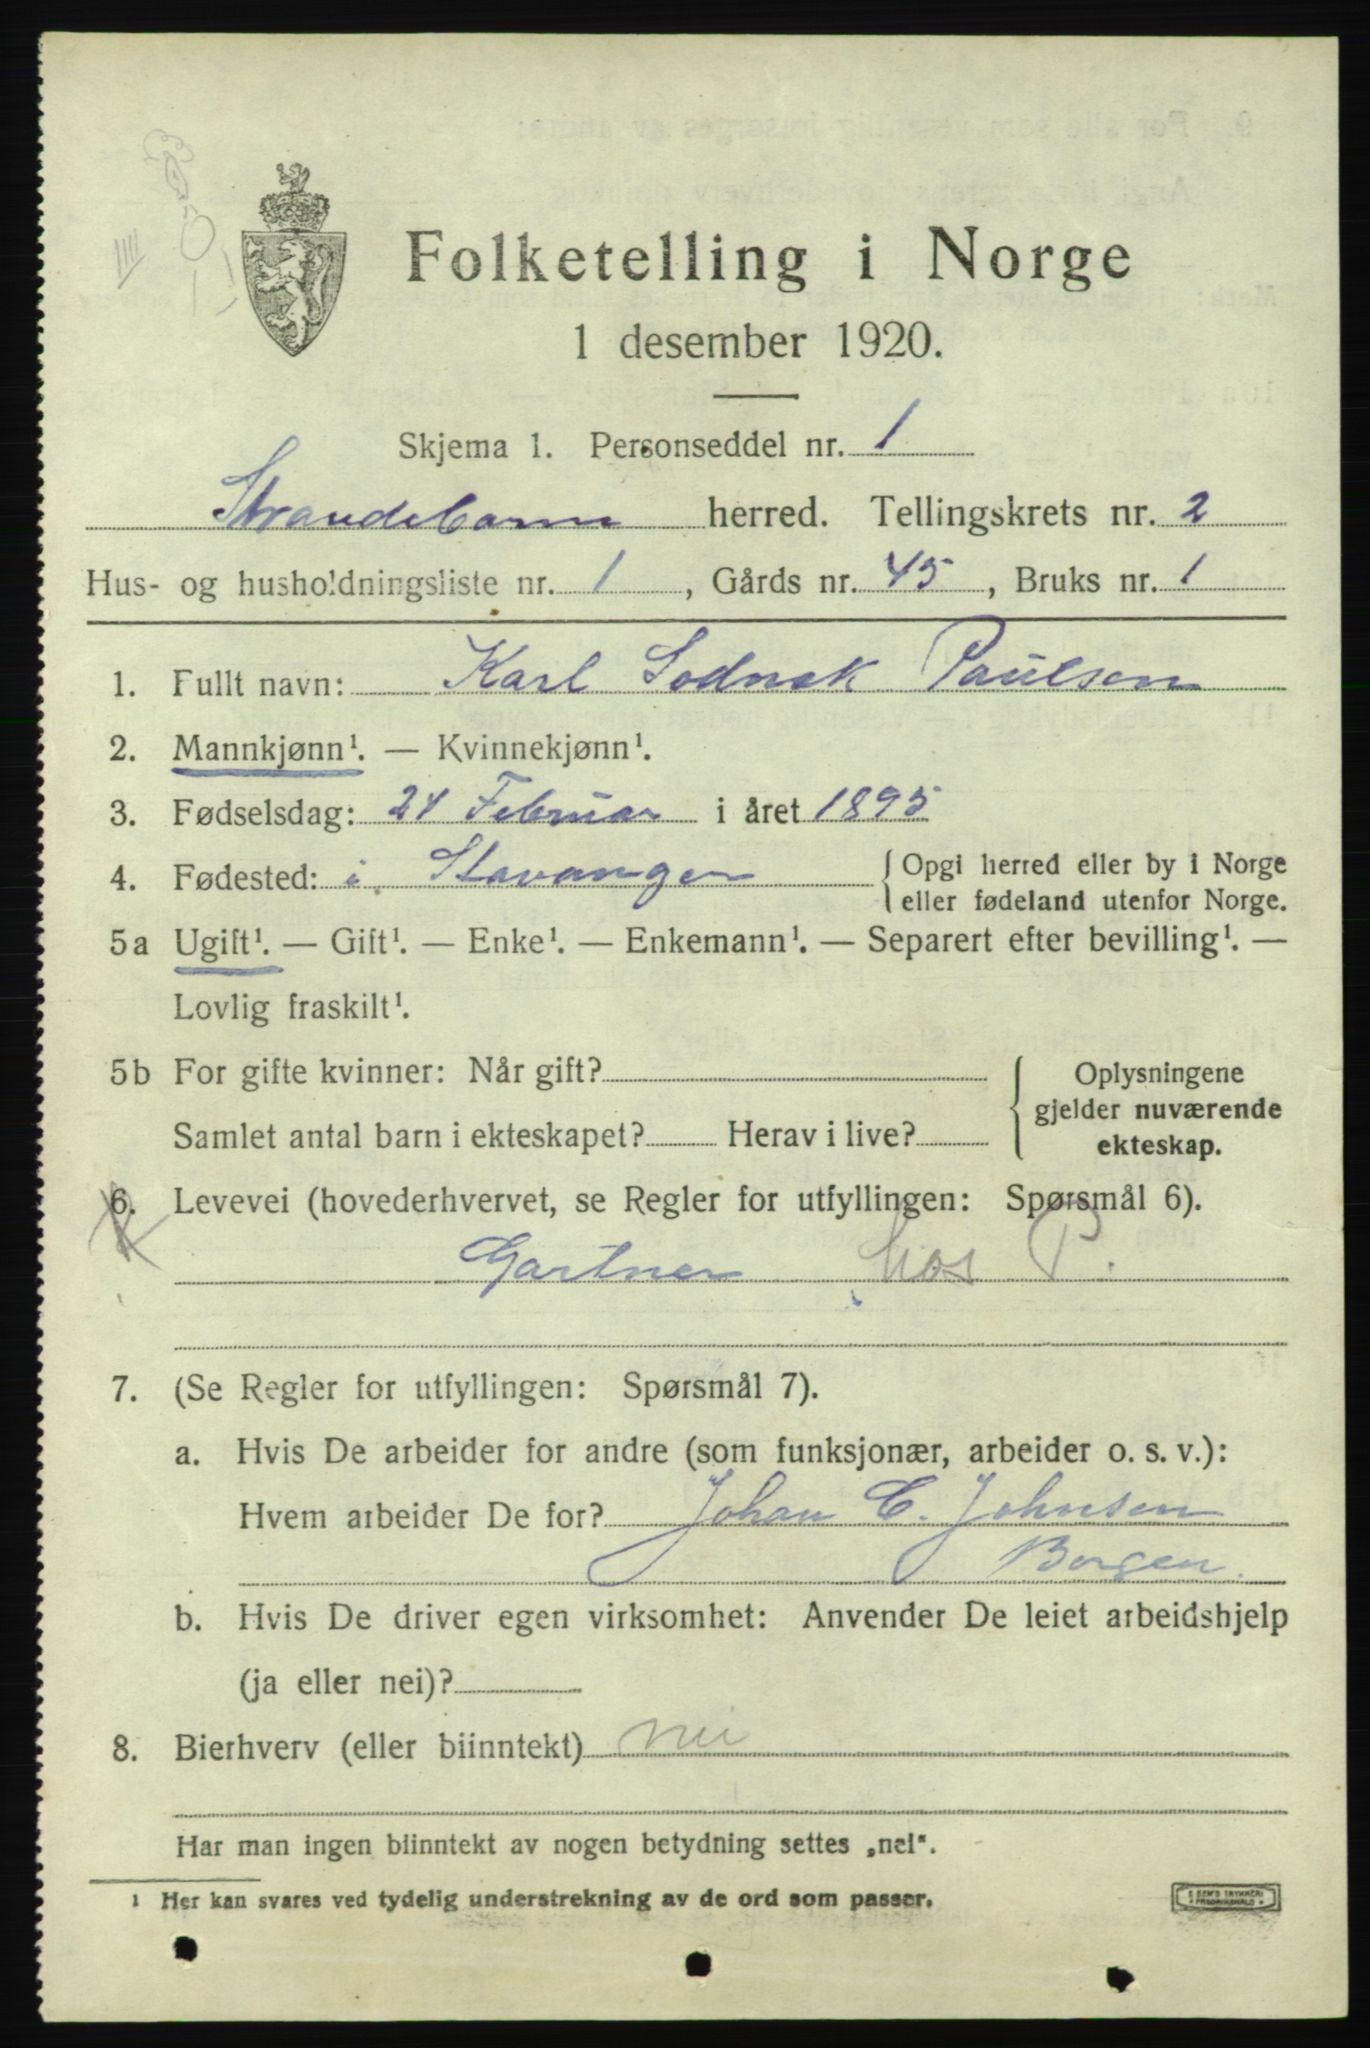 Folketelling i Norge
1 desember 1920.
Skjema 1. Personseddel nr. 1
Strandebarm herred. Tellingskrets nr. 2
Hus- og husholdningsliste nr. 1, Gårds nr. 45, Bruks nr. 1
1. Fullt navn: Karl Paulsen
2. Mannkjønn¹. — Kvinnekjønn¹.
3. Fødselsdag: 24 Februar i året 1895
4. Fødested: i Stavanger { Opgi herred eller by i Norge
eller fødeland utenfor Norge.
5a Ugift¹. — Gift¹. — Enke¹. — Enkemann¹. — Separert efter bevilling¹. —
Lovlig fraskilt¹.
5b For gifte kvinner: Når gift? { Oplysningene
gjelder nuværende
Samlet antal barn i ekteskapet? Herav i live? ekteskap.
6. Levevei (hovederhvervet, se Regler for utfyllingen: Spørsmål 6).
Gartner hos P.
7. (Se Regler for utfyllingen: Spørsmål 7).
a. Hvis De arbeider for andre (som funksjonær, arbeider o. s. v.):
Hvem arbeider De for? Johan C. Johnsen
Borgen.
b. Hvis De driver egen virksomhet: Anvender De leiet arbeidshjelp
(ja eller nei)?
8. Bierhverv (eller biinntekt) nei
Har man ingen biinntekt av nogen betydning settes „nei“.
1 Her kan svares ved tydelig understrekning av de ord som passer.